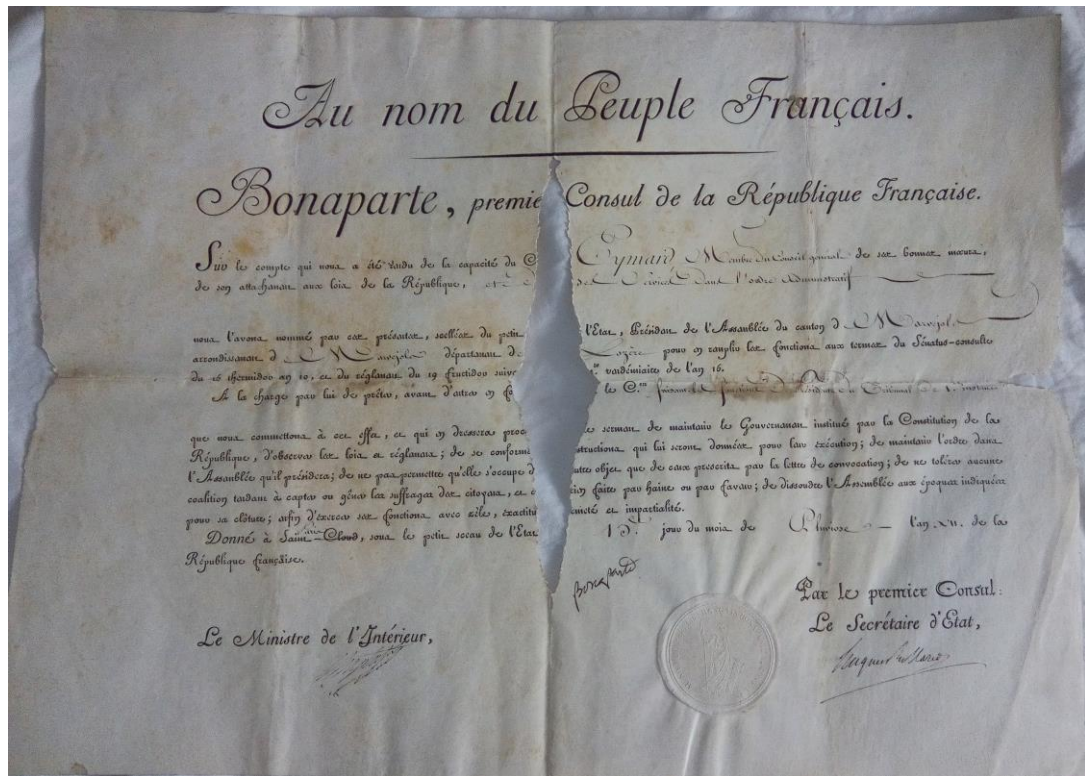 Au nom du Peuple Français.
Bonaparte, premie Consul de la République Française.
Sur le compte qui nous a été rendu de la capacité du C Eymard Membre du Conseil général de ses bonnes mœurs,
de son attachement aux lois de la République, et d des Services dans l'ordre Administratif
nous l'avons nommé par ces présentes, scellées du petit l'Etat, Président de l'Assemblée du canton d Marvejols
arrondissement d Marvejols département de Lozère pour en remplir les fonctions aux termes du Sénatus-consulte
du 16 thermidor an 10, et du réglement du 19 fructidor suiv vendémiaire de l'an 16.
A la charge par lui de prêter, avant d'entrer en fo le C.en faisant les fonctions de Président du Tribunal de 1.e instance
que nous commettons à cet effet, et qui en dressera proc le serment de maintenir le Gouvernement institué par la Constitution de la
République, d'observer les lois et réglemens; de se conforme structions qui lui seront données pour leur exécution; de maintenir l'ordre dans
l'Assemblée qu'il présidera; de ne pas permettre qu'elle s'occupe d utre objet que de ceux prescrits par la lettre de convocation; de ne tolérer aucune
coalition tendant à capter ou gêner les suffrages des citoyens, et rien faire par haine ou par faveur; de dissoudre l'Assemblée aux époques indiquées
pour sa clôture; enfin d'exercer ses fonctions avec zèle, exactitu meté et impartialité.
Donné à Saint-Cloud, sous le petit sceau de l'Etat 15. jour du mois de Pluviose l'an XII. de la
République française.
Bonaparte
Par le premier Consul:
Le Secrétaire d'Etat,
Le Ministre de l'Intérieur,
Hugues B. Maret